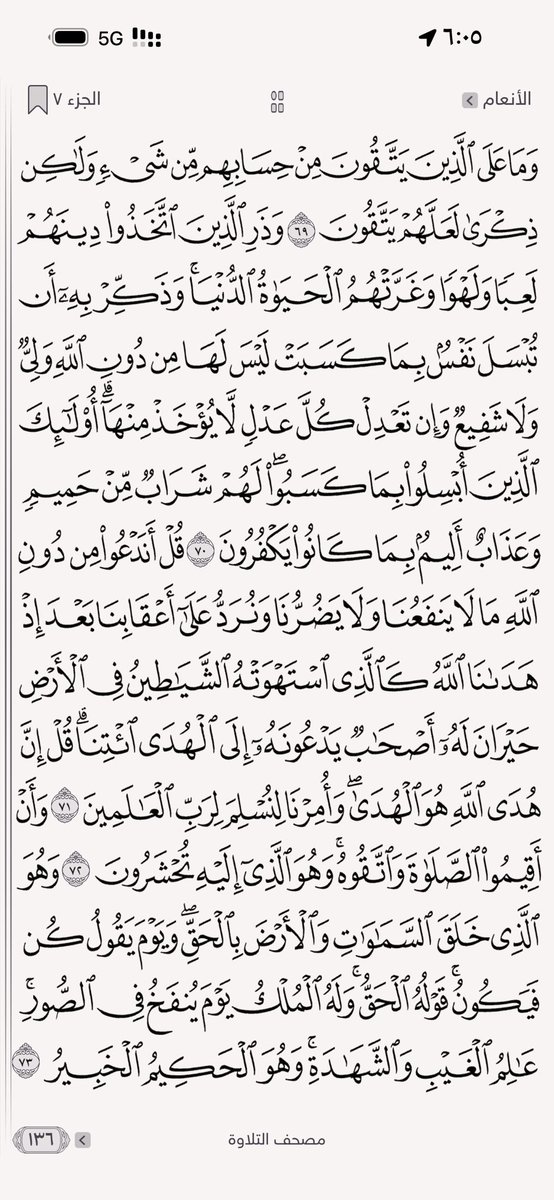 ٦:٠٥ 5G
الأنعام الجزء ٧
وَمَا عَلَى ٱلَّذِينَ يَتَّقُونَ مِنْ حِسَابِهِم مِّن شَىْءٍ وَلَـٰكِن
ذِكْرَىٰ لَعَلَّهُمْ يَتَّقُونَ ٦٩ وَذَرِ ٱلَّذِينَ ٱتَّخَذُوا۟ دِينَهُمْ
لَعِبًا وَلَهْوًا وَغَرَّتْهُمُ ٱلْحَيَوٰةُ ٱلدُّنْيَا ۚ وَذَكِّرْ بِهِۦٓ أَن
تُبْسَلَ نَفْسٌۢ بِمَا كَسَبَتْ لَيْسَ لَهَا مِن دُونِ ٱللَّهِ وَلِىٌّ
وَلَا شَفِيعٌ وَإِن تَعْدِلْ كُلَّ عَدْلٍ لَّا يُؤْخَذْ مِنْهَآ ۗ أُو۟لَـٰٓئِكَ
ٱلَّذِينَ أُبْسِلُوا۟ بِمَا كَسَبُوا۟ ۖ لَهُمْ شَرَابٌ مِّنْ حَمِيمٍ
وَعَذَابٌ أَلِيمٌۢ بِمَا كَانُوا۟ يَكْفُرُونَ ٧٠ قُلْ أَنَدْعُوا۟ مِن دُونِ
ٱللَّهِ مَا لَا يَنفَعُنَا وَلَا يَضُرُّنَا وَنُرَدُّ عَلَىٰٓ أَعْقَابِنَا بَعْدَ إِذْ
هَدَىٰنَا ٱللَّهُ كَٱلَّذِى ٱسْتَهْوَتْهُ ٱلشَّيَـٰطِينُ فِى ٱلْأَرْضِ
حَيْرَانَ لَهُۥٓ أَصْحَـٰبٌ يَدْعُونَهُۥٓ إِلَى ٱلْهُدَى ٱئْتِنَا ۗ قُلْ إِنَّ
هُدَى ٱللَّهِ هُوَ ٱلْهُدَىٰ ۖ وَأُمِرْنَا لِنُسْلِمَ لِرَبِّ ٱلْعَـٰلَمِينَ ٧١ وَأَنْ
أَقِيمُوا۟ ٱلصَّلَوٰةَ وَٱتَّقُوهُ ۚ وَهُوَ ٱلَّذِىٓ إِلَيْهِ تُحْشَرُونَ ٧٢ وَهُوَ
ٱلَّذِى خَلَقَ ٱلسَّمَـٰوَٰتِ وَٱلْأَرْضَ بِٱلْحَقِّ ۖ وَيَوْمَ يَقُولُ كُن
فَيَكُونُ ۚ قَوْلُهُ ٱلْحَقُّ ۚ وَلَهُ ٱلْمُلْكُ يَوْمَ يُنفَخُ فِى ٱلصُّورِ ۚ
عَـٰلِمُ ٱلْغَيْبِ وَٱلشَّهَـٰدَةِ ۚ وَهُوَ ٱلْحَكِيمُ ٱلْخَبِيرُ ٧٣
مصحف التلاوة ١٣٦